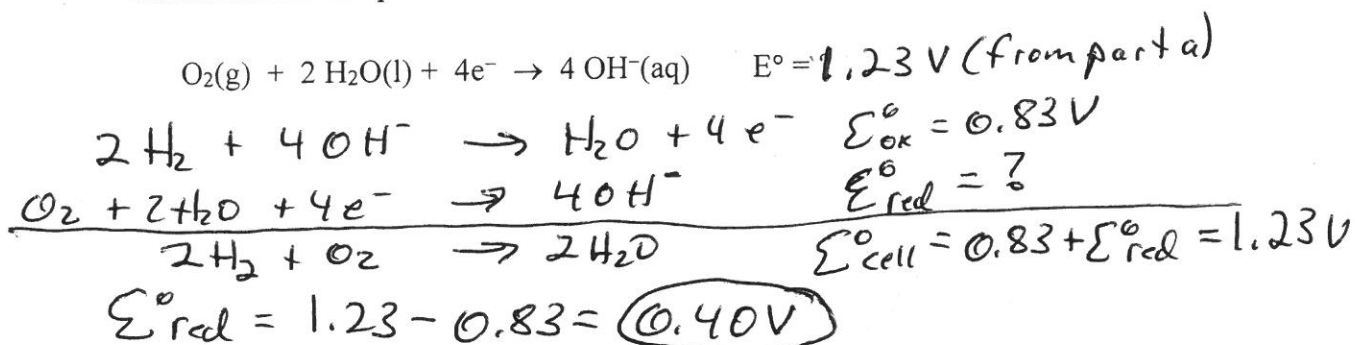 O₂(g) + 2 H₂O(l) + 4e⁻ → 4 OH⁻(aq) E° = 1.23 V (from part a)
2 H₂ + 4 OH⁻ → H₂O + 4 e⁻ ℰ°ox = 0.83 V
O₂ + 2H₂O + 4e⁻ → 4OH⁻ ℰ°red = ?
2H₂ + O₂ → 2H₂O ℰ°cell = 0.83 + ℰ°red = 1.23 V
ℰ°red = 1.23 - 0.83 = 0.40V